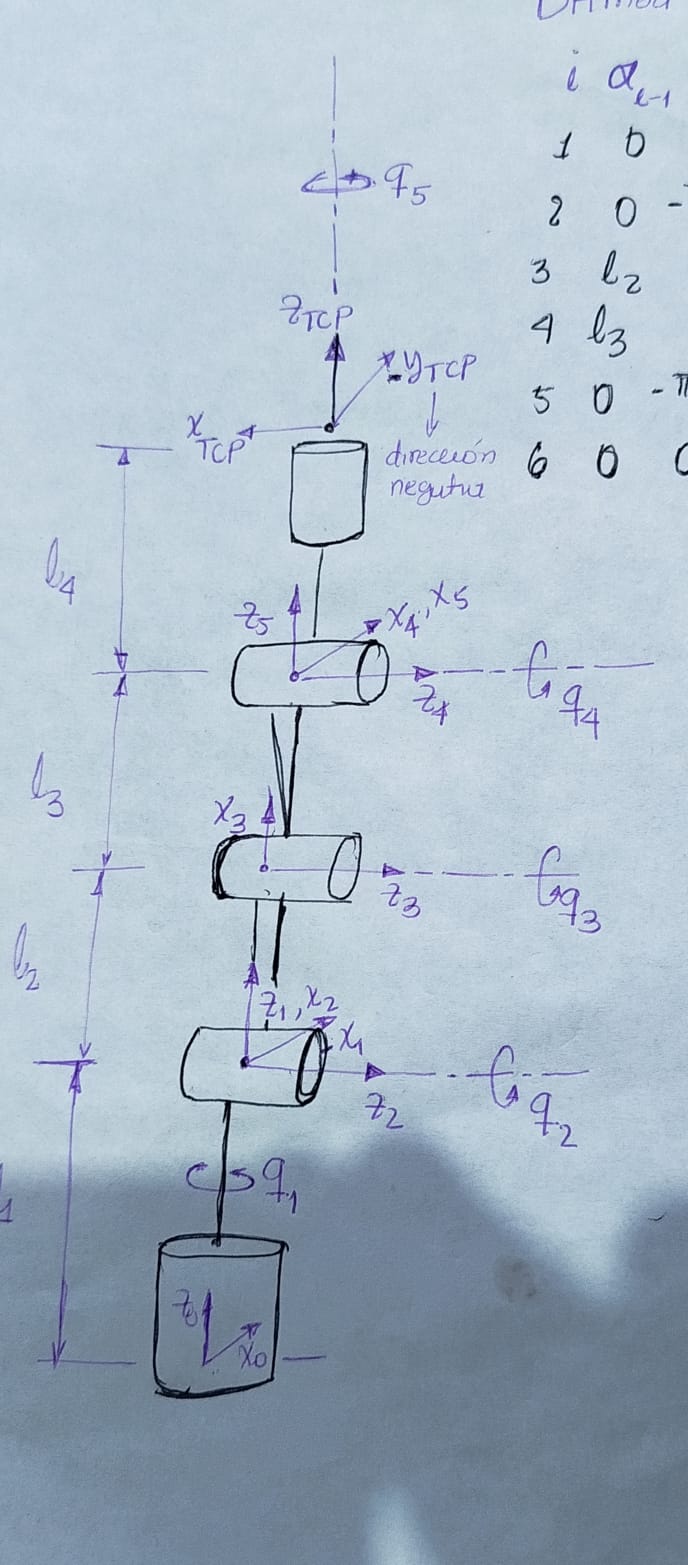 i α i-1
1 0
2 0 -
3 l2
4 l3
5 0 -π
6 0 0
q5
zTCP
-yTCP
xTCP
dirección
negativa
l4
z5
x4, x5
z4
q4
l3
x3
z3
q3
l2
z1, x2
x1
z2
q2
q1
1
z0
x0